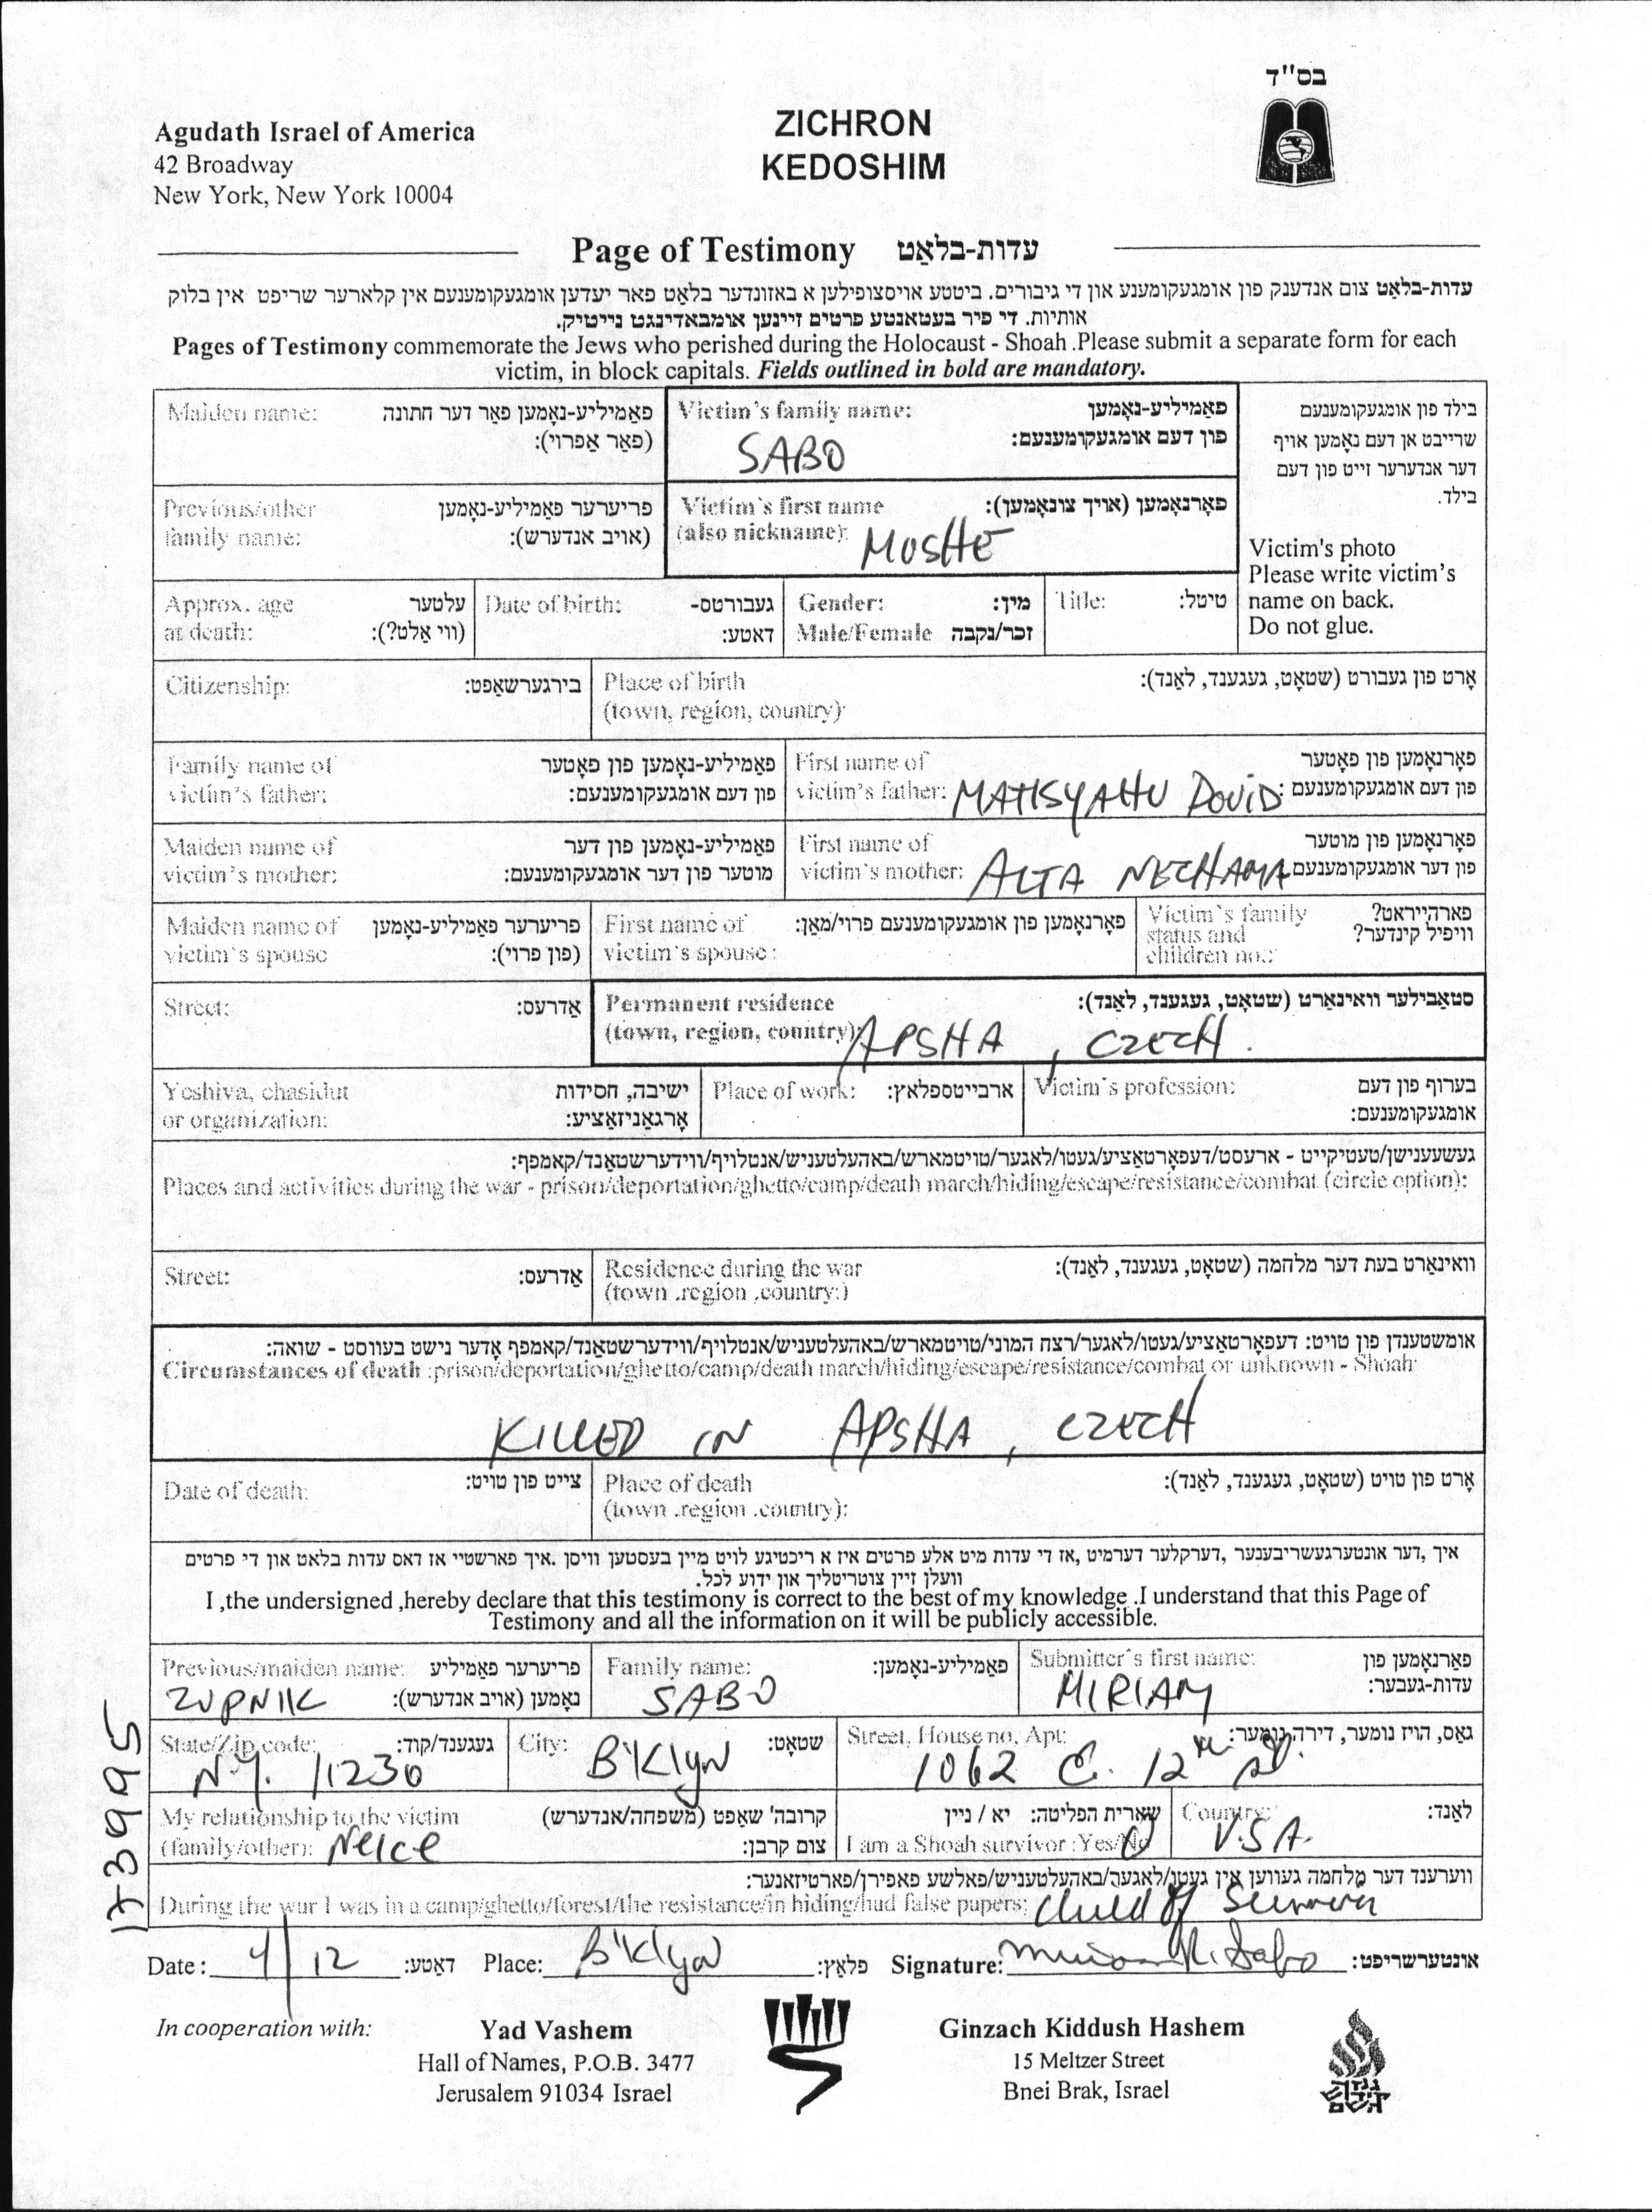 בס"ד
Agudath Israel of America
42 Broadway
New York, New York 10004
ZICHRON
KEDOSHIM
Page of Testimony עדות-בלאַט
עדות-בלאַט צום אנדענק פון אומגעקומענע און די גיבורים. ביטטע אויסצופילען א באזונדער בלאַט פאר יעדען אומגעקומענעם אין קלארער שריפט אין בלוק
אותיות. די פיר בעטאנטע פרטים זיינען אומבאדינגט נייטיק.
Pages of Testimony commemorate the Jews who perished during the Holocaust - Shoah .Please submit a separate form for each
victim, in block capitals. Fields outlined in bold are mandatory.
Maiden name: פאַמיליע-נאָמען פאַר דער חתונה
(פאַר אַפרוי):
Victim's family name: פאַמיליע-נאָמען
פון דעם אומגעקומענעם:
SABO
בילד פון אומגעקומענעם
שרייבט אן דעם נאָמען אויף
דער אנדערער זייט פון דעם
בילד.
Victim's photo
Please write victim's
name on back.
Do not glue.
Previous/other פריערער פאַמיליע-נאָמען
family name: (אויב אנדערש):
Victim's first name פאָרנאָמען (אויך צונאָמען):
(also nickname): MOSHE
Approx. age עלטער
at death: (ווי אַלט?):
Date of birth: געבורטס-
דאטע:
Gender: מין:
Male/Female זכר/נקבה
Title: טיטל:
Citizenship: בירגערשאַפט:
Place of birth אָרט פון געבורט (שטאָט, געגענד, לאַנד):
(town, region, country):
Family name of פאַמיליע-נאָמען פון פאָטער
victim's father: פון דעם אומגעקומענעם:
First name of פאָרנאָמען פון פאָטער
victim's father: MATISYAHU DOVID פון דעם אומגעקומענעם:
Maiden name of פאַמיליע-נאָמען פון דער
victim's mother: מוטער פון דער אומגעקומענעם:
First name of פאָרנאָמען פון מוטער
victim's mother: ALTA NECHAMA פון דער אומגעקומענעם:
Maiden name of פריערער פאַמיליע-נאָמען
victim's spouse (פון פרוי):
First name of פאָרנאָמען פון אומגעקומענעם פרוי/מאַן:
victim's spouse:
Victim's family פארהייראט?
status and וויפיל קינדער?
children no.:
Street: אַדרעס:
Permanent residence סטאַבילער וואוינאָרט (שטאָט, געגענד, לאַנד):
(town, region, country): APSHA , CZECH.
Yeshiva, chasidut ישיבה, חסידות
or organization: אָרגאַניזאַציע:
Place of work: ארבייטספלאץ:
Victim's profession: בערוף פון דעם
אומגעקומענעם:
געשעענישן/טעטיקייט - ארעסט/דעפאָרטאַציע/געטו/לאגער/טויטמארש/באהעלטעניש/אנטלויף/ווידערשטאַנד/קאמפף:
Places and activities during the war - prison/deportation/ghetto/camp/death march/hiding/escape/resistance/combat (circle option):
Street: אַדרעס:
Residence during the war וואוינאָרט בעת דער מלחמה (שטאָט, געגענד, לאַנד):
(town .region ,country:)
אומשטענדן פון טויט: דעפאָרטאַציע/געטו/לאגער/רצח המוני/טויטמארש/באהעלטעניש/אנטלויף/ווידערשטאַנד/קאמפף אָדער נישט בעווסט - שואה:
Circumstances of death :prison/deportation/ghetto/camp/death march/hiding/escape/resistance/combat or unknown - Shoah:
KILLED IN APSHA , CZECH
Date of death: צייט פון טויט:
Place of death אָרט פון טויט (שטאָט, געגענד, לאַנד):
(town .region .country):
איך ,דער אונטערגעשריבענער ,דערקלער דערמיט ,אז די עדות מיט אלע פרטים איז א ריכטיגע לויט מיין בעסטען וויסן .איך פארשטיי אז דאס עדות בלאט און די פרטים
וועלן זיין צוטריטליך און ידוע לכל.
I ,the undersigned ,hereby declare that this testimony is correct to the best of my knowledge .I understand that this Page of
Testimony and all the information on it will be publicly accessible.
Previous/maiden name: פריערער פאַמיליע
ZUPNIK נאָמען (אויב אנדערש):
Family name: פאַמיליע-נאָמען:
SABO
Submitter's first name: פאַרנאָמען פון
MIRIAM עדות-געבער:
State/Zip code: געגענד/קוד:
N.Y. 11230
City: B'klyn שטאָט:
Street, House no, Apt: גאַס, הויז נומער, דירה נומער:
1062 E. 12th St.
My relationship to the victim קרובה' שאַפט (משפחה/אנדערש)
(family/other): Neice צום קרבן:
שארית הפליטה: יא / ניין
I am a Shoah survivor :Yes/No
Country: לאַנד:
U.S.A.
ווערענד דער מלחמה געווען אין געטו/לאגער/באהעלטעניש/פאלשע פאפירן/פארטיזאנער:
During the war I was in a camp/ghetto/forest/the resistance/in hiding/had false papers: Child of Survivor
Date: 4/12 דאַטע: Place: B'klyn פלאַץ: Signature: Miriam R. Sabo אונטערשריפט:
In cooperation with:
Yad Vashem
Hall of Names, P.O.B. 3477
Jerusalem 91034 Israel
Ginzach Kiddush Hashem
15 Meltzer Street
Bnei Brak, Israel
גנזך
קידוש
השם